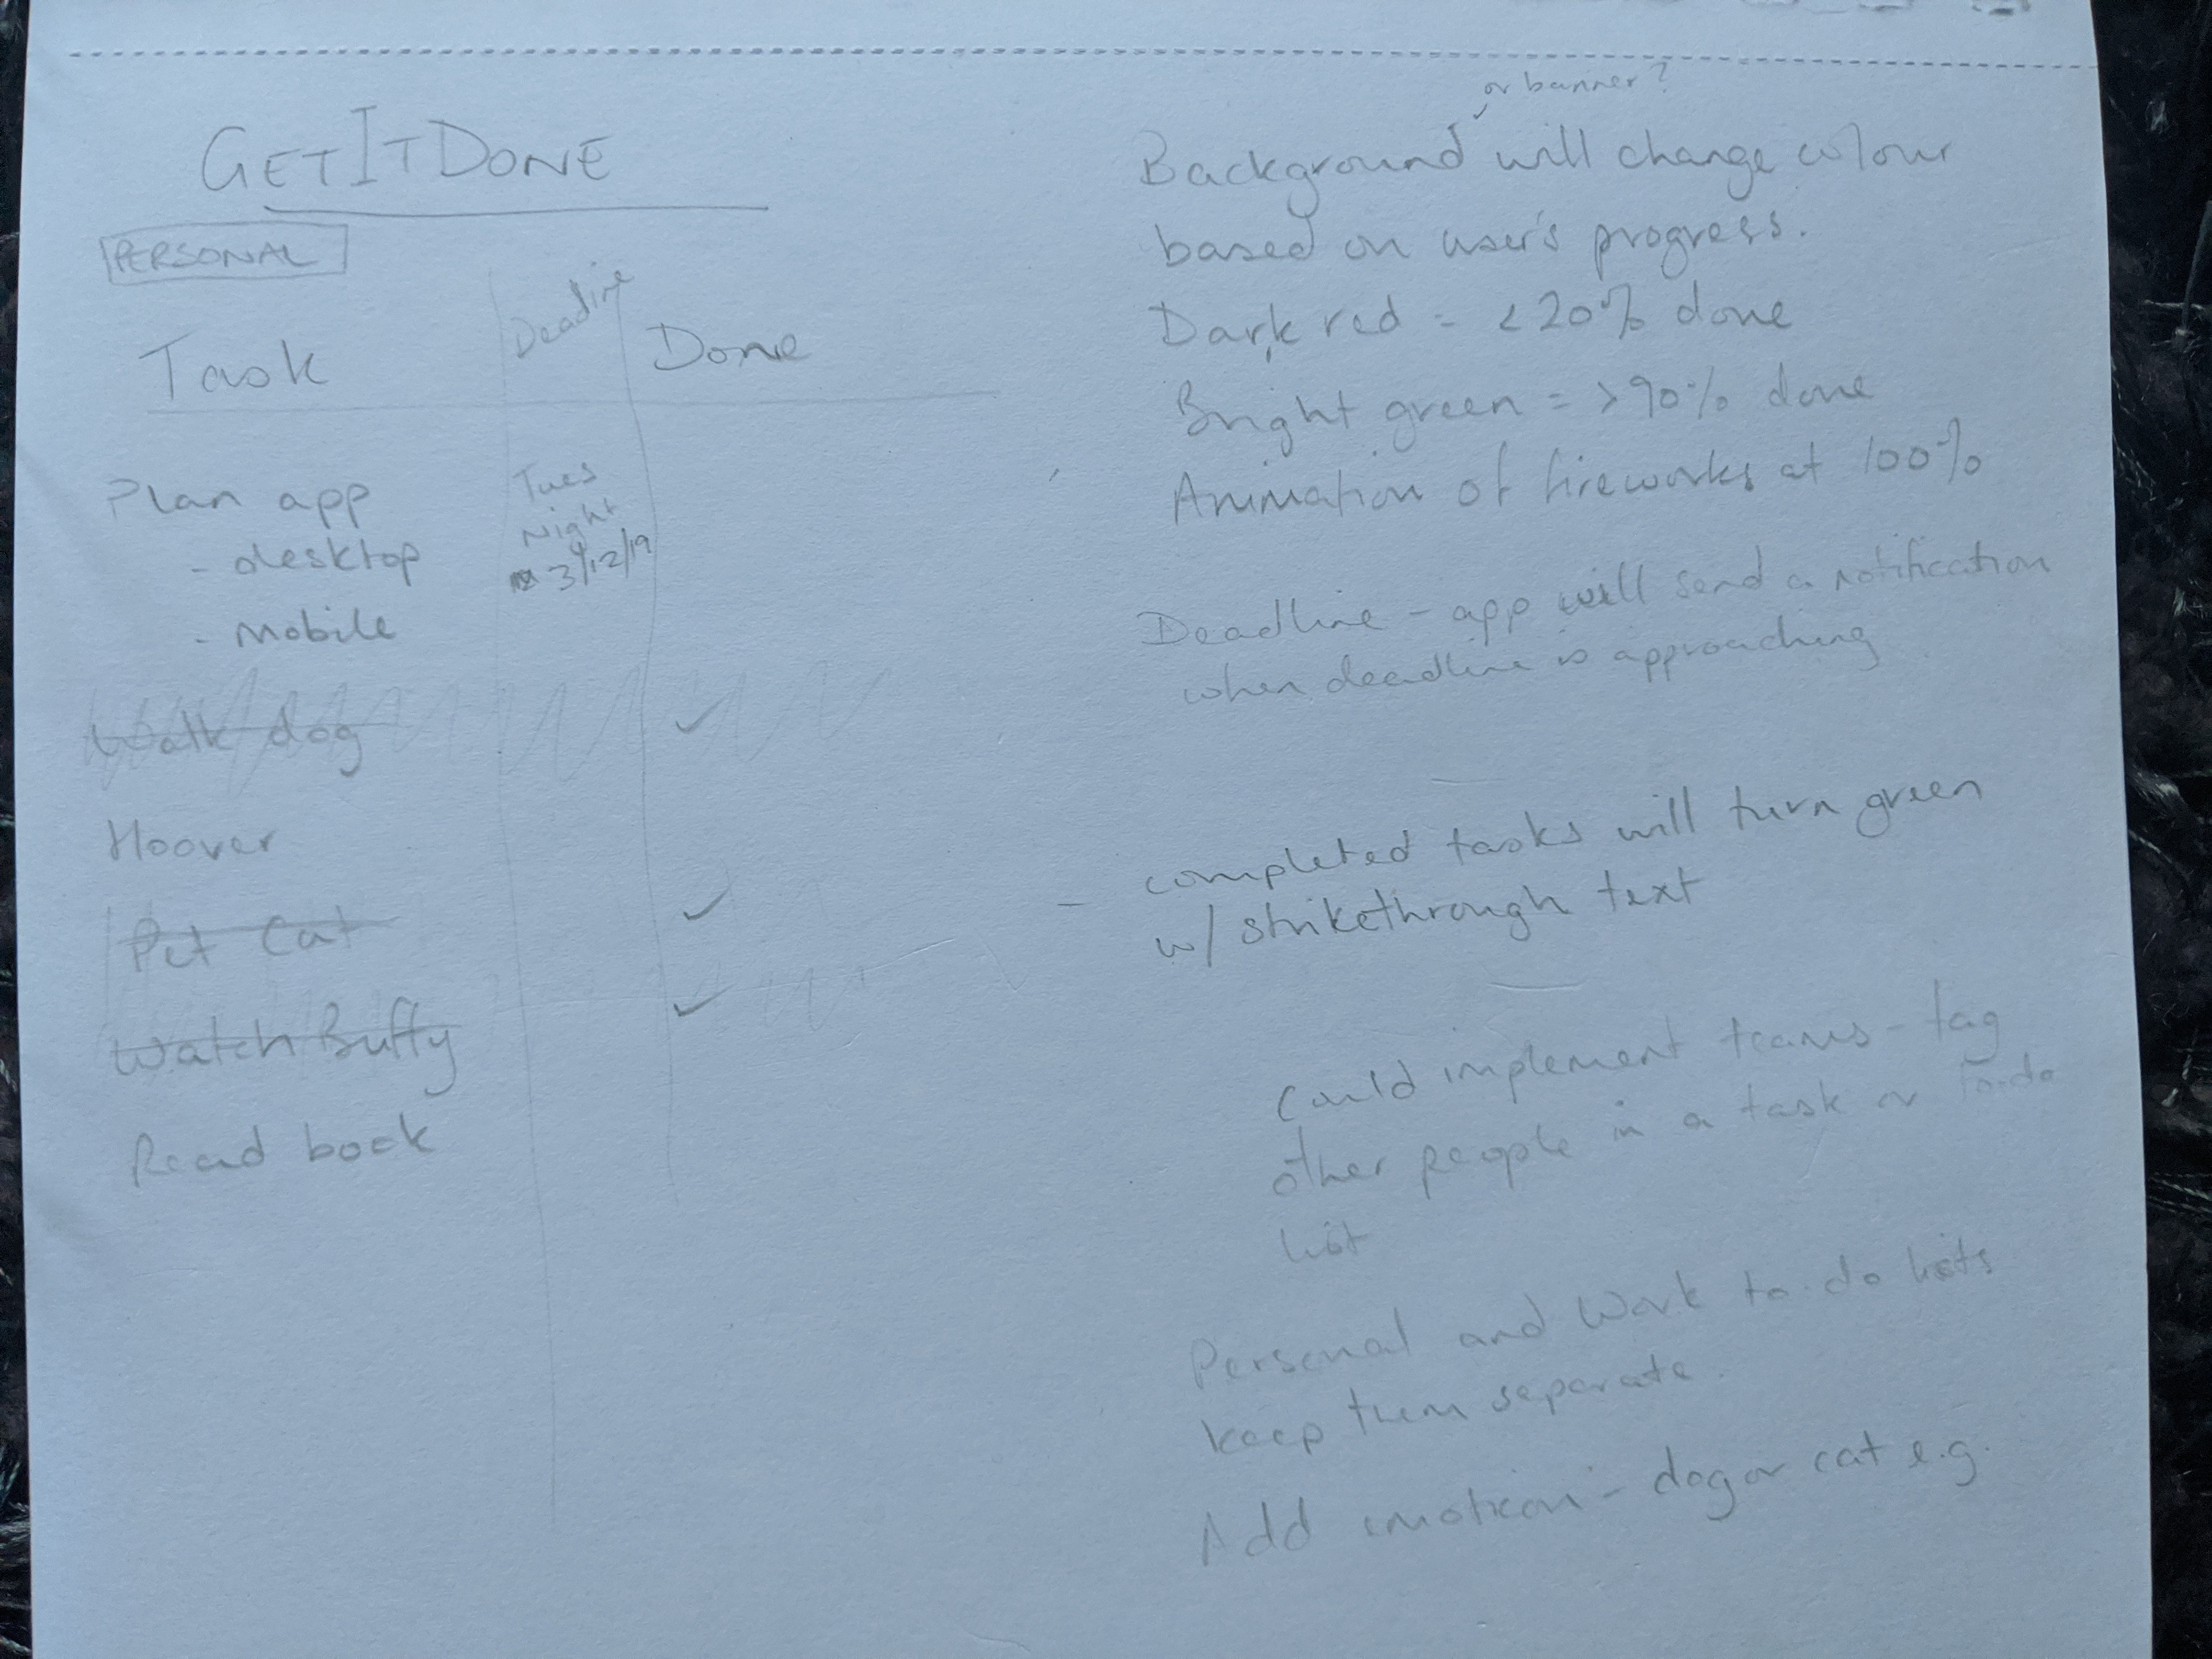 GETITDONE
PERSONAL
Task
Deadline
Done
Plan app
- desktop
- mobile
Tues
Night
3/12/19
Walk dog
✓
Hoover
Pet Cat
✓
Watch Buffy
✓
Read book
or banner?
Background will change colour
based on user's progress.
Dark red = <20% done
Bright green = >90% done
Animation of fireworks at 100%
Deadline - app will send a notification
when deadline is approaching
- completed tasks will turn green
w/ strikethrough text
Could implement teams - tag
other people in a task or to-do
list
Personal and Work to-do lists
keep them separate.
Add emoticon - dog or cat e.g.